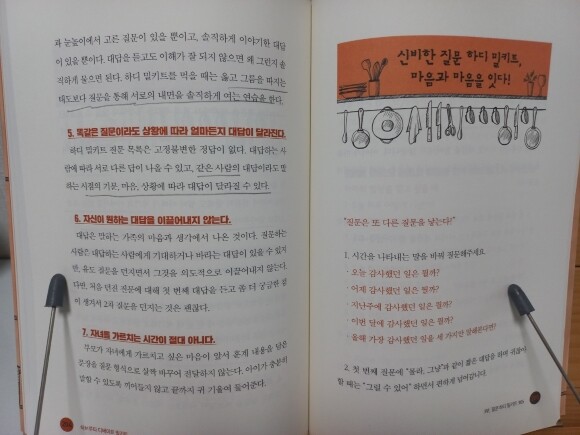 과 눈높이에서 고른 질문이 있을 뿐이고, 솔직하게 이야기한 대답
이 있을 뿐이다. 대답을 듣고도 이해가 잘 되지 않으면 왜 그런지 솔
직하게 물으면 된다. 하디 밀키트를 먹을 때는 옳고 그름을 따지는
태도보다 질문을 통해 서로의 내면을 솔직하게 여는 연습을 한다.
5. 똑같은 질문이라도 상황에 따라 얼마든지 대답이 달라진다.
하디 밀키트 질문 목록은 고정불변한 정답이 없다. 대답하는 사
람에 따라 서로 다른 답이 나올 수 있고, 같은 사람의 대답이라도 말
하는 시점의 기분, 마음, 상황에 따라 대답이 달라질 수 있다.
6. 자신이 원하는 대답을 이끌어내지 않는다.
대답은 말하는 가족의 마음과 생각에서 나온 것이다. 질문하는
사람은 대답하는 사람에게 기대하거나 바라는 대답이 있을 수 있지
만, 유도 질문을 던지면서 그것을 의도적으로 이끌어내지 않는다.
다만, 처음 던진 질문에 대해 첫 번째 대답을 듣고 좀 더 궁금한 점
이 생겨서 2차 질문을 던지는 것은 괜찮다.
7. 자녀를 가르치는 시간이 절대 아니다.
부모가 자녀에게 가르치고 싶은 마음이 앞서 훈계 내용을 담은
문장을 질문 형식으로 살짝 바꾸어 전달하지 않는다. 아이가 충분히
말할 수 있도록 끼어들지 않고 끝까지 귀 기울여 들어준다.
신비한 질문 하디 밀키트,
마음과 마음을 잇다!
"질문은 또 다른 질문을 낳는다!"
1. 시간을 나타내는 말을 바꿔 질문해주세요.
- 오늘 감사했던 일은 뭘까?
- 어제 감사했던 일은 뭘까?
- 지난주에 감사했던 일은 뭘까?
- 이번 달에 감사했던 일은 뭘까?
- 올해 가장 감사했던 일을 세 가지만 말해본다면?
2. 첫 번째 질문에 "몰라, 그냥"과 같이 짧은 대답을 하며 귀찮아
할 때는 "그럴 수 있어" 하면서 편하게 넘어갑니다.